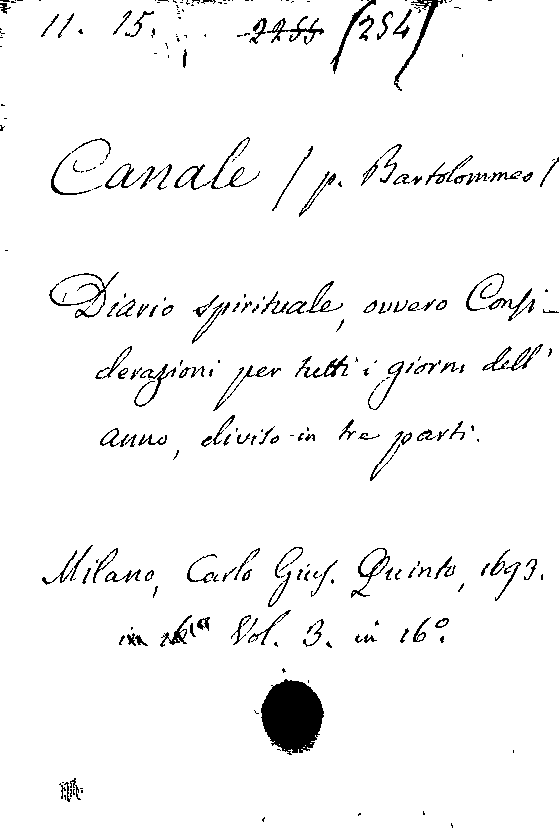 11. 15. 2255 (254)
Canale / p. Bartolommeo /
Diario spirituale, ovvero Consi-
derazioni per tutti i giorni dell'
anno, diviso in tre parti.
Milano, Carlo Gius. Quinto, 1693.
Vol. 3. in 16º.